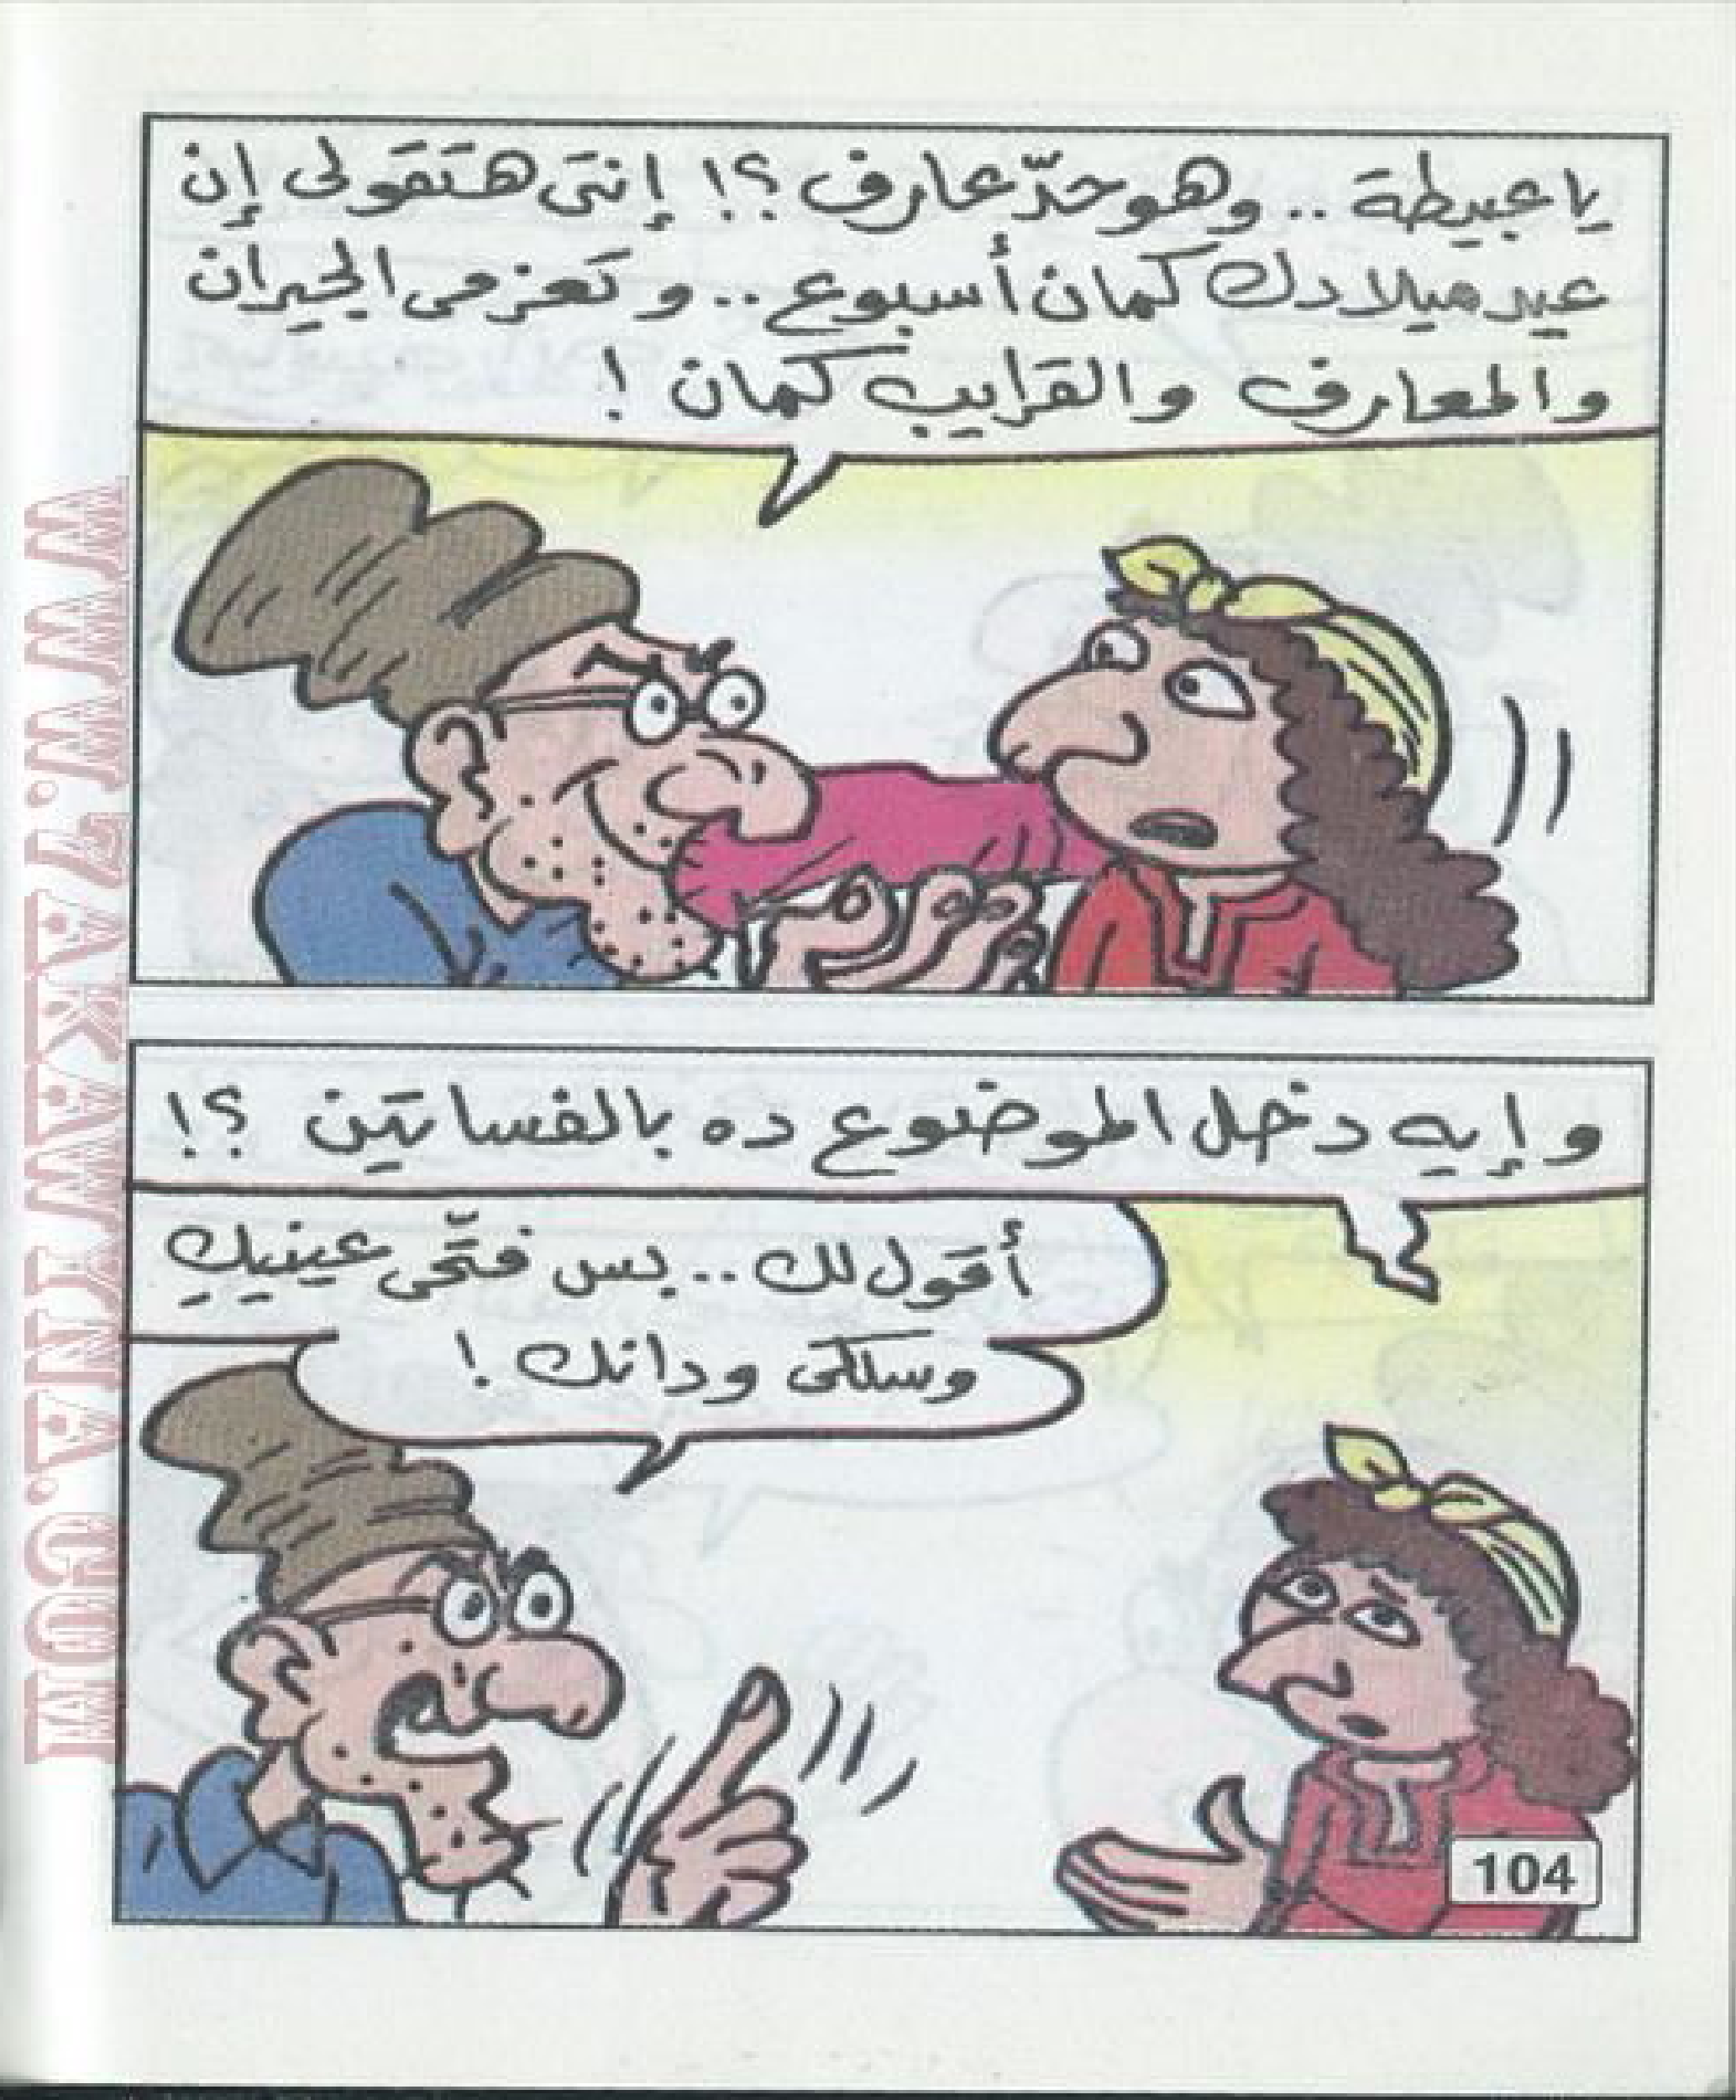 يا عبيطة .. وهو حدّ عارف ؟! إنتى هتقولى إن
عيد ميلادك كمان أسبوع .. وتعزمى الجيران
والمعارف والقرايب كمان !
وإيه دخل الموضوع ده بالفساتين ؟!
أقول لك .. بس فتّحى عينيكِ
وسلكى ودانك !
104
WWW.7AKAWTINA.COM